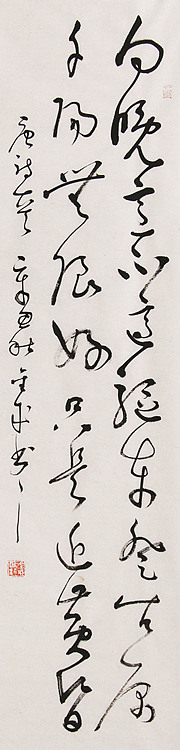 向晚意不適驅車登古原
夕陽無限好只是近黃昏
唐詩一首 秋 書